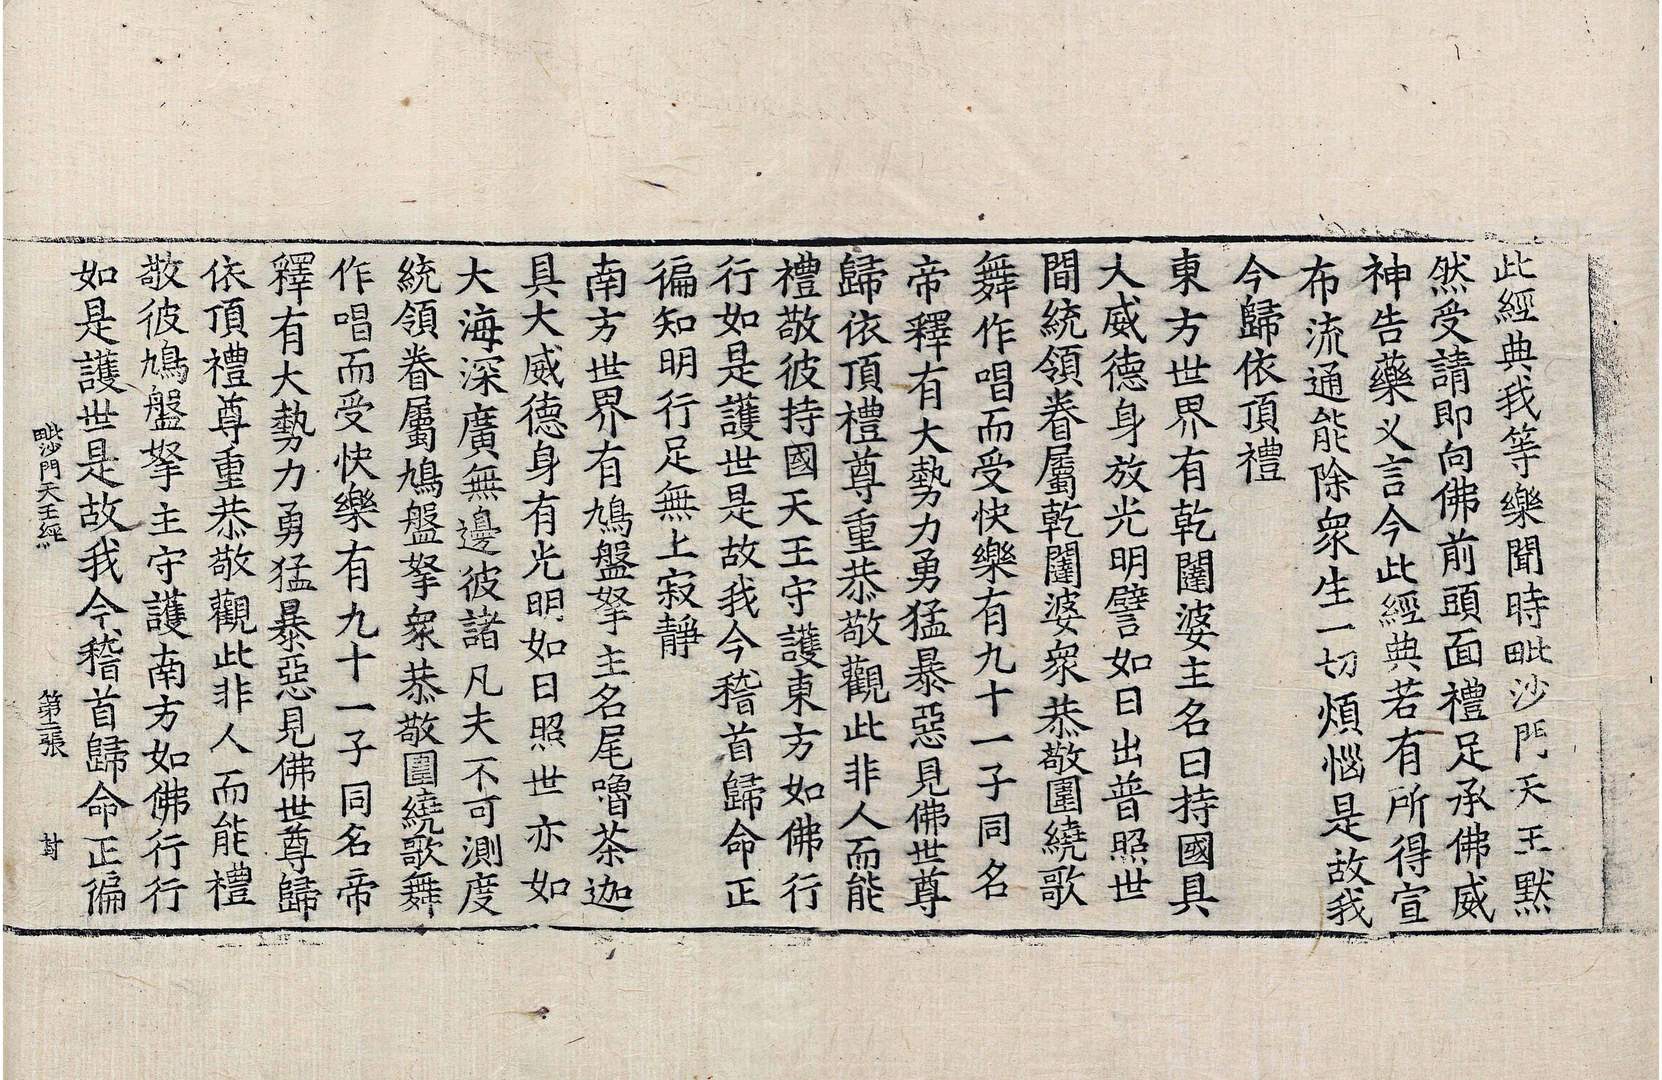 此經典我等樂聞時毗沙門天王默
然受請即向佛前頭面禮足承佛威
神告藥义言今此經典若有所得宣
布流通能除衆生一切煩惱是故我
今歸依頂禮
東方世界有乾闥婆主名曰持國具
大威德身放光明譬如日出普照世
間統領眷屬乾闥婆衆恭敬圍繞歌
舞作唱而受快樂有九十一子同名
帝釋有大勢力勇猛暴惡見佛世尊
歸依頂禮尊重恭敬觀此非人而能
禮敬彼持國天王守護東方如佛行
行如是護世是故我今稽首歸命正
徧知明行足無上寂靜
南方世界有鳩盤拏主名尾嚕茶迦
具大威德身有光明如日照世亦如
大海深廣無邊彼諸凡夫不可測度
統領眷屬鳩盤拏衆恭敬圍繞歌舞
作唱而受快樂有九十一子同名帝
釋有大勢力勇猛暴惡見佛世尊歸
依頂禮尊重恭敬觀此非人而能禮
敬彼鳩盤拏主守護南方如佛行行
如是護世是故我今稽首歸命正徧
毗沙門天王經 第二張 封